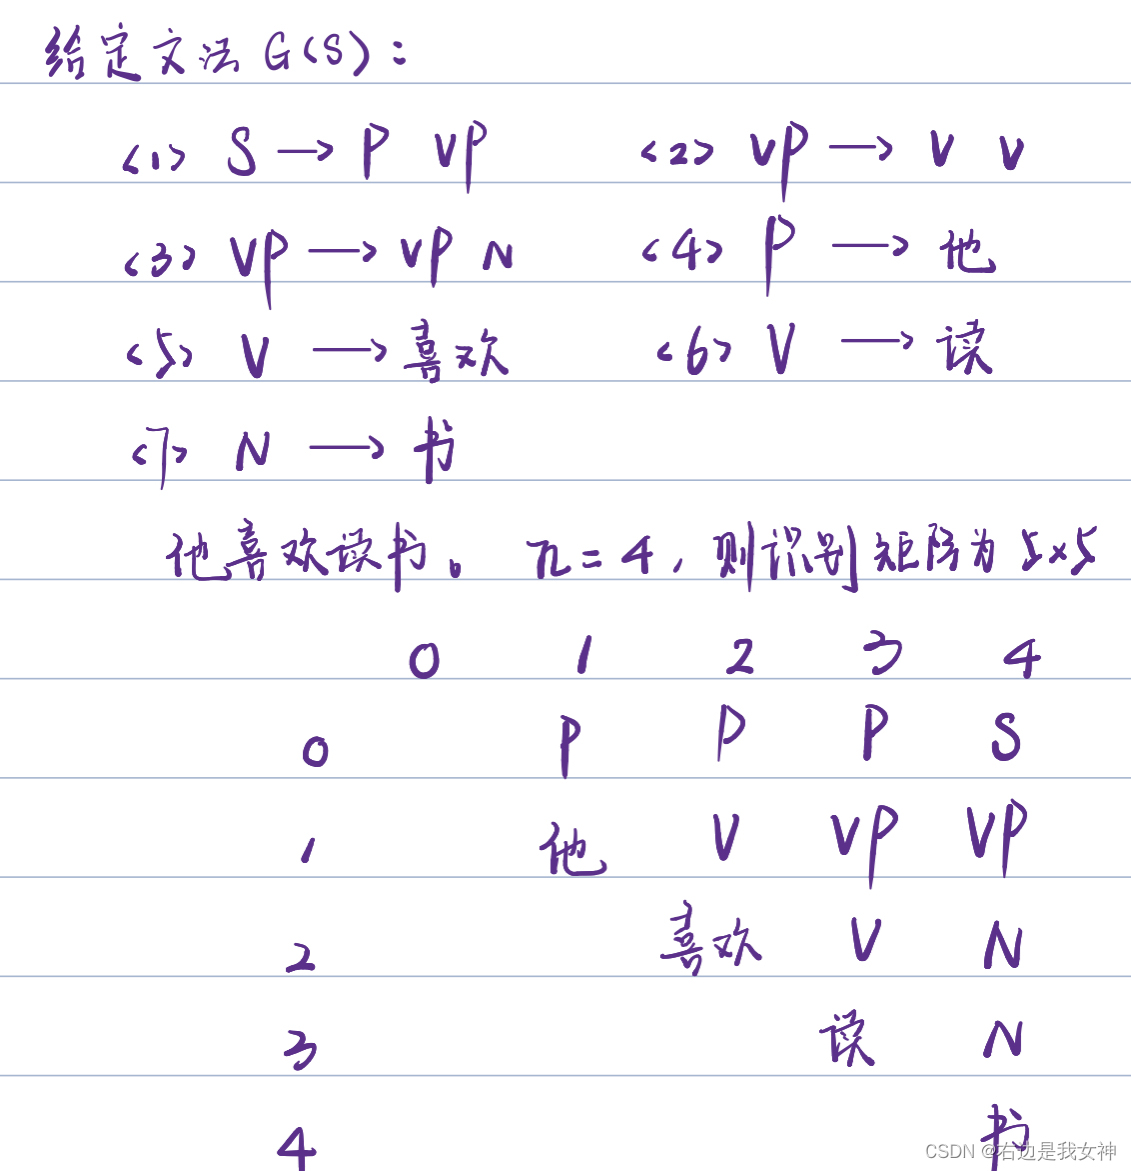 给定文法 G(S):
<1> S → P VP <2> VP → V V
<3> VP → VP N <4> P → 他
<5> V → 喜欢 <6> V → 读
<7> N → 书
他喜欢读书。 n=4, 则识别矩阵为 5×5
0 1 2 3 4
0 P P P S
1 他 V VP VP
2 喜欢 V N
3 读 N
4 书
CSDN @右边是我女神